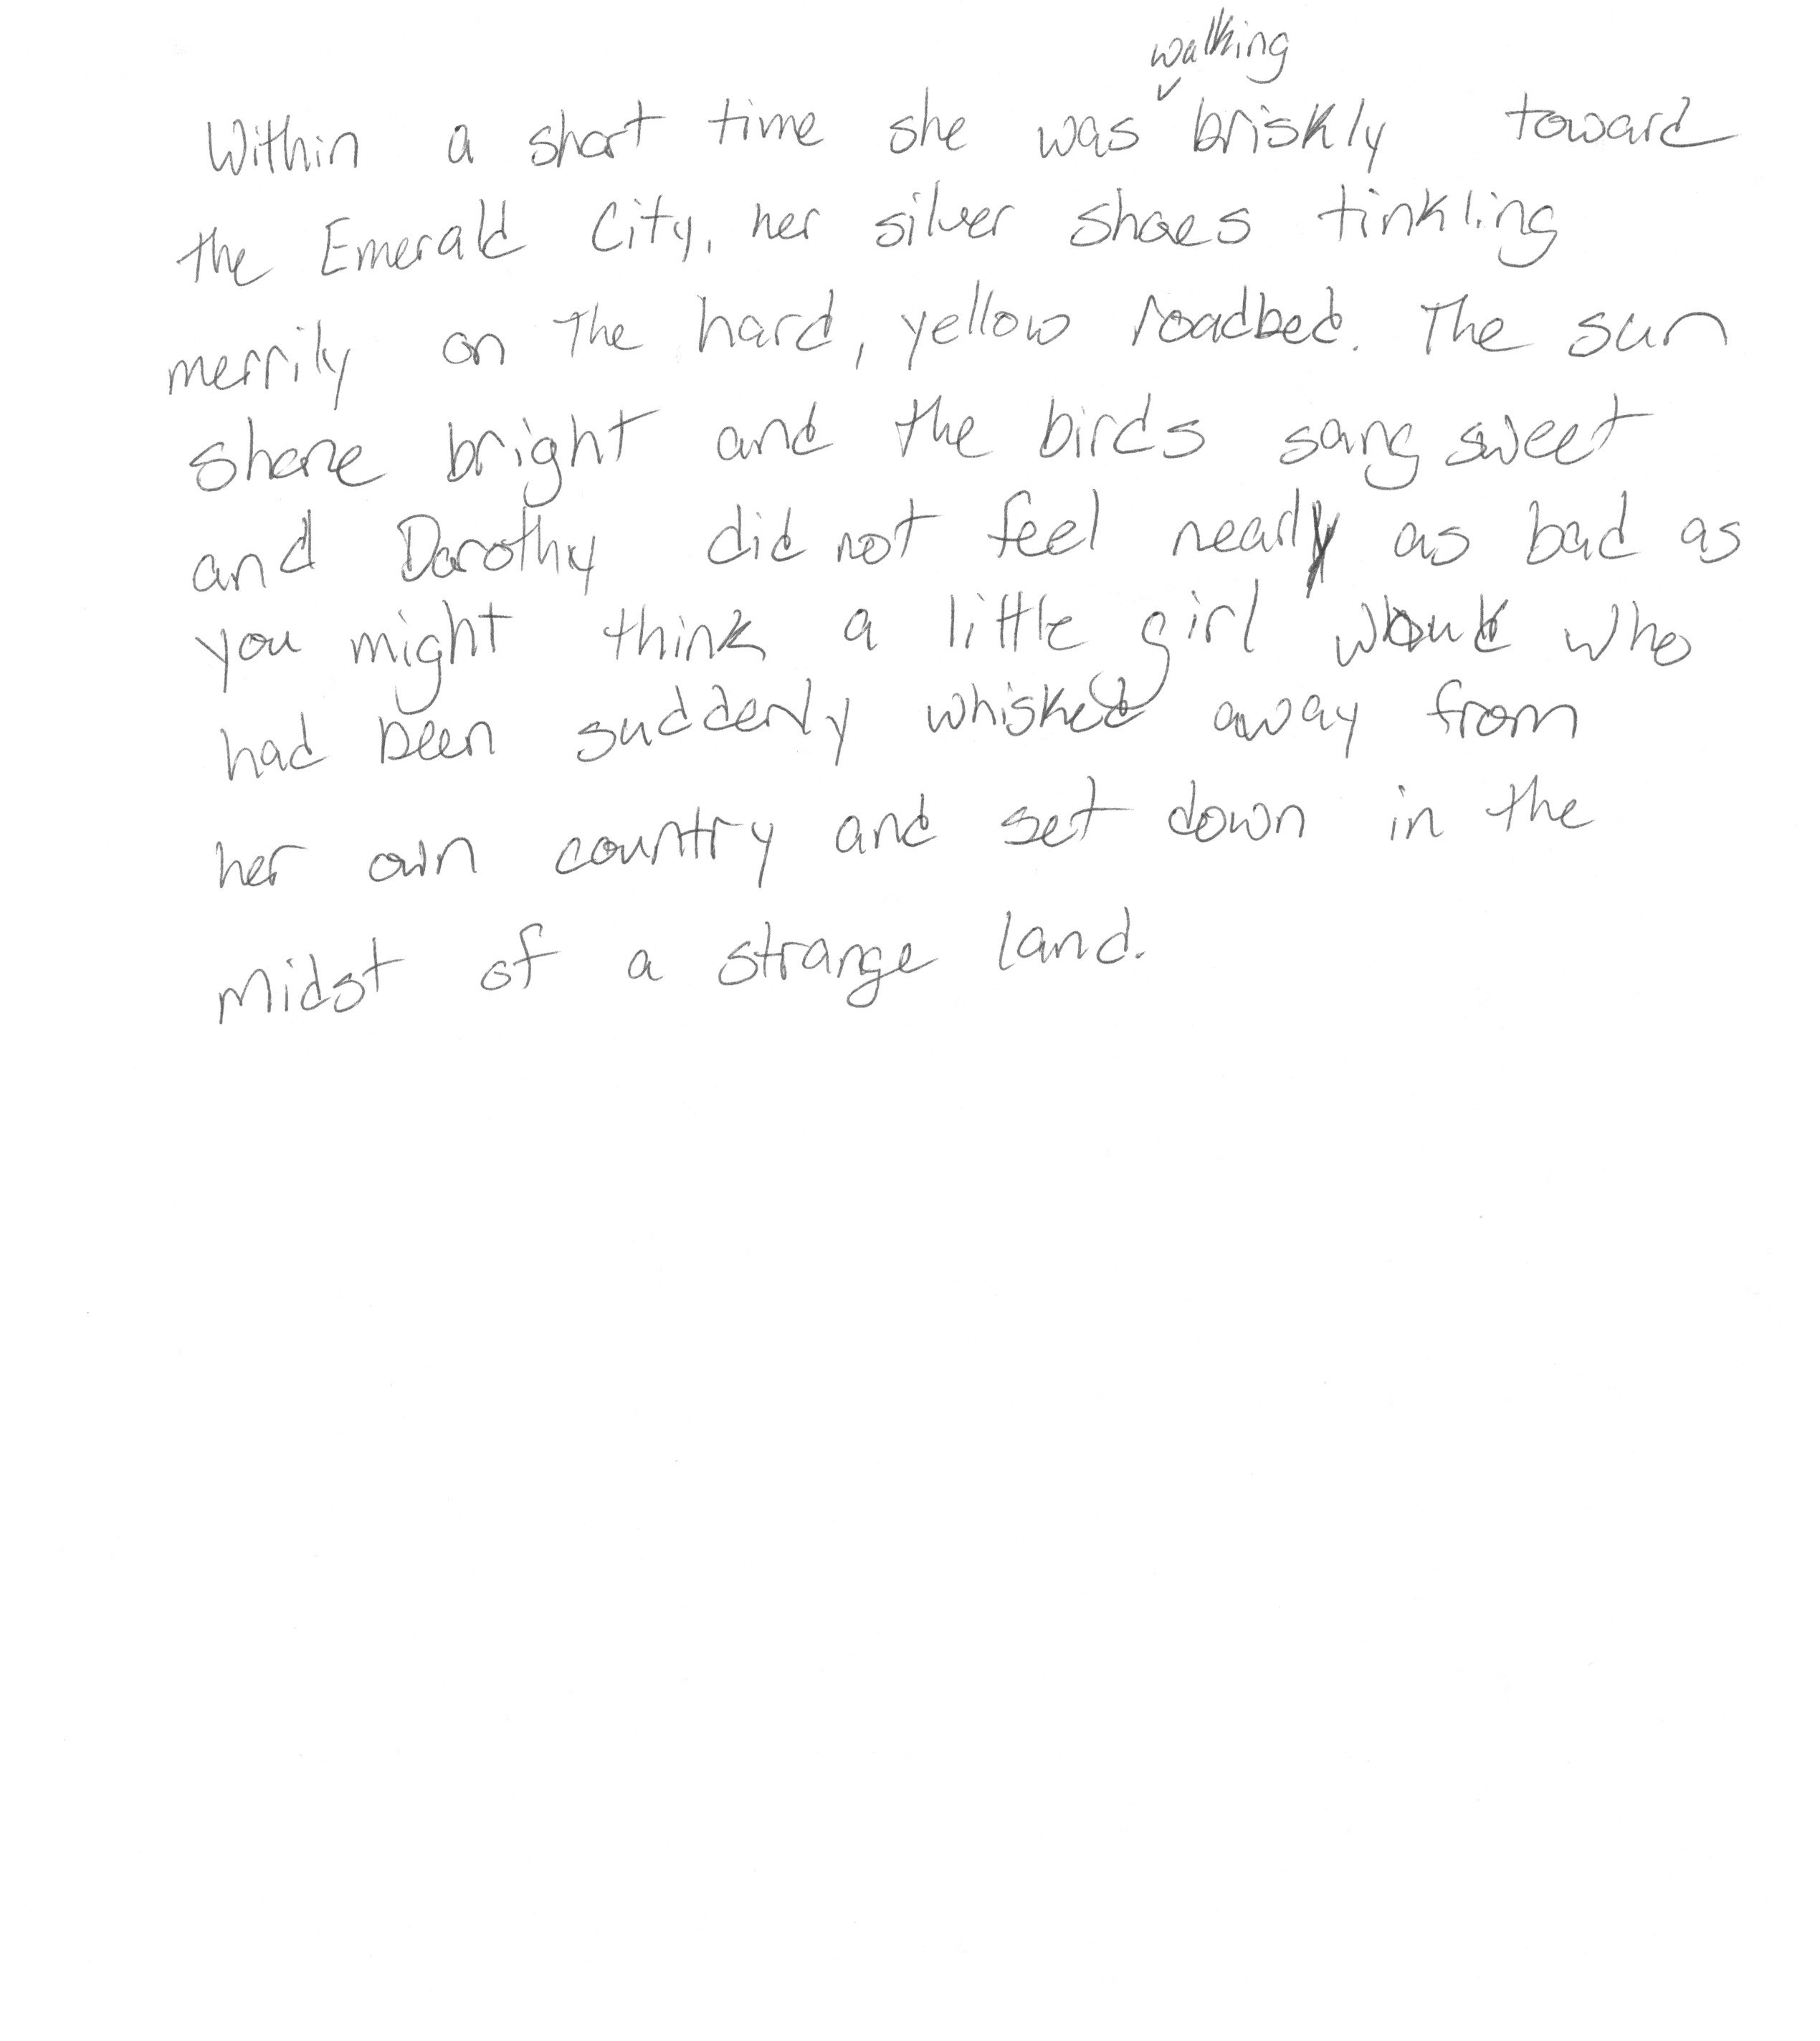 Within a short time she was walking briskly toward
the Emerald City, her silver shoes tinkling
merrily on the hard, yellow roadbed. The sun
shone bright and the birds sang sweet
and Dorothy did not feel nearly as bad as
you might think a little girl would who
had been suddenly whisked away from
her own country and set down in the
midst of a strange land.